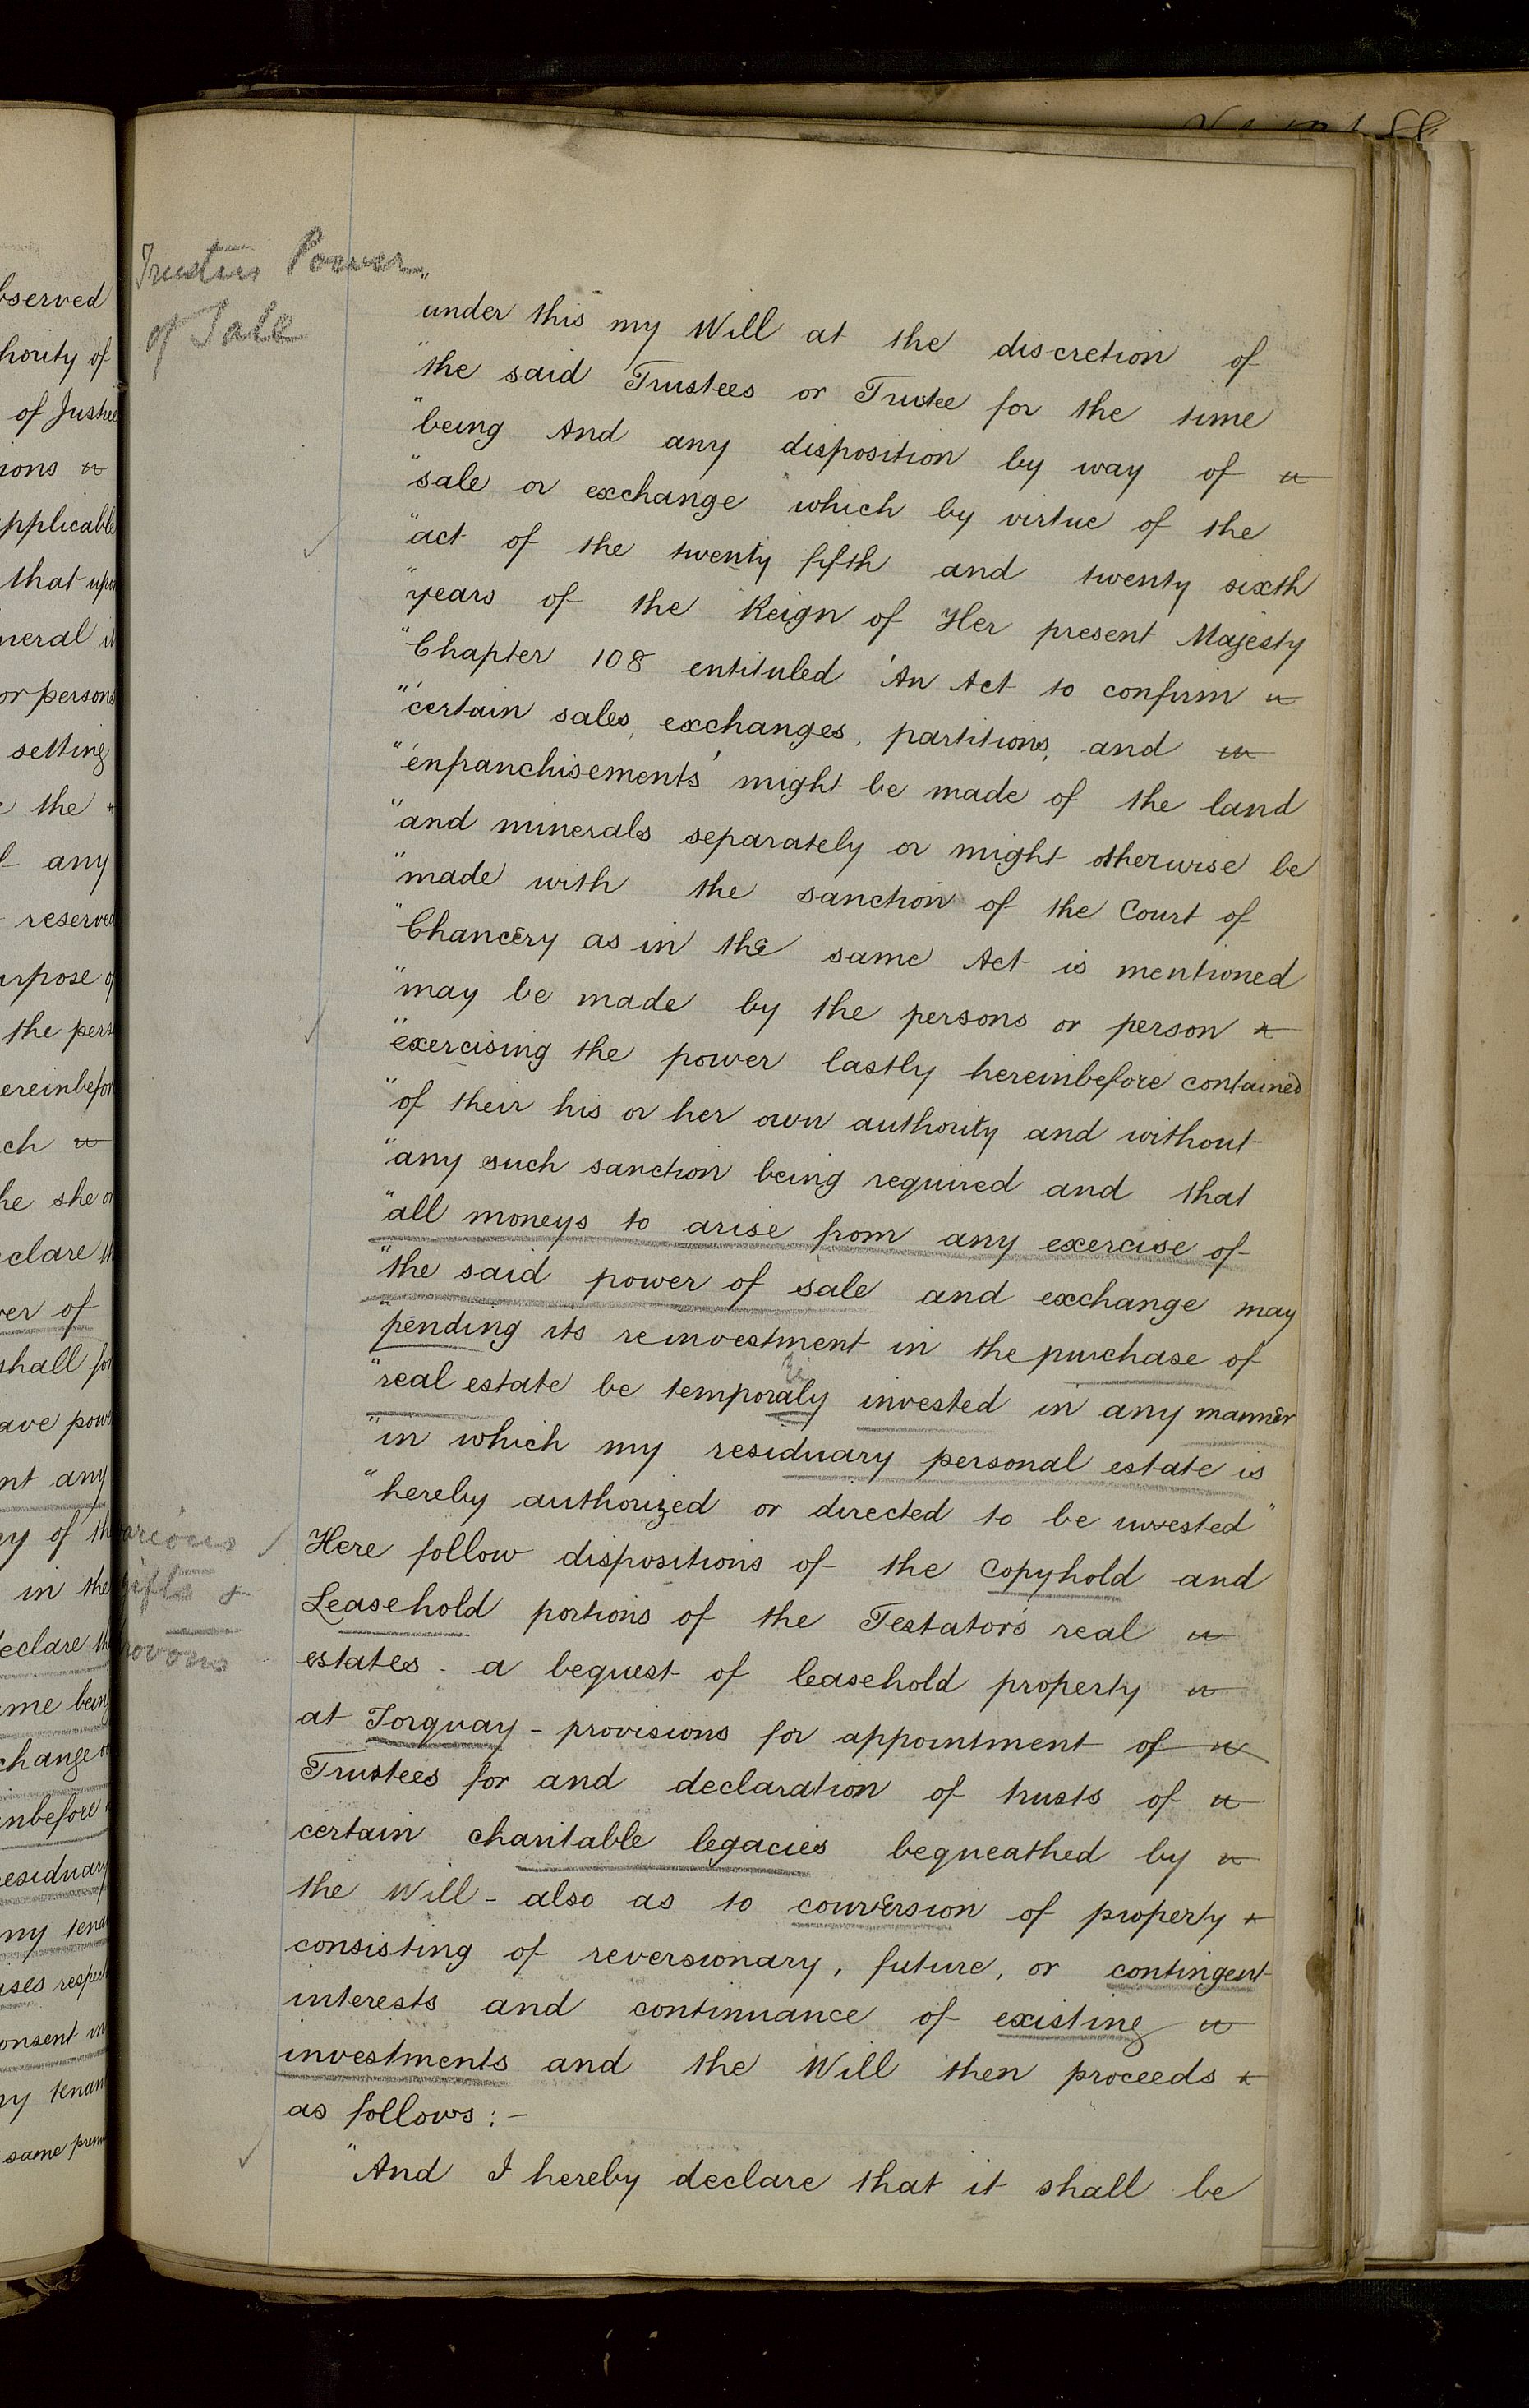 Trustees Power
of Sale
"under this my Will at the discretion of
"the said Trustees or Trustee for the time
"being And any disposition by way of
"sale or exchange which by virtue of the
"act of the twenty fifth and twenty sixth
"years of the Reign of Her present Majesty
"Chapter 108 entituled 'An Act to confirm
"'certain sales, exchanges, partitions, and
"'enfranchisements' might be made of the land
"and minerals separately or might otherwise be
"made with the sanction of the Court of
"Chancery as in the same Act is mentioned
"may be made by the persons or person
"exercising the power lastly hereinbefore contained
"of their his or her own authority and without
"any such sanction being required and that
"all moneys to arise from any exercise of
"the said power of sale and exchange may
"pending its reinvestment in the purchase of
"real estate be temporaly invested in any manner
"in which my residuary personal estate is
"hereby authorized or directed to be invested"
Here follow dispositions of the Copyhold and
Leasehold portions of the Testator's real
estates - a bequest of leasehold property
at Torquay - provisions for appointment of
Trustees for and declaration of trusts of
certain charitable legacies bequeathed by
the Will - also as to conversion of property
consisting of reversionary, future, or contingent
interests and continuance of existing
investments and the Will then proceeds
as follows:-
"And I hereby declare that it shall be